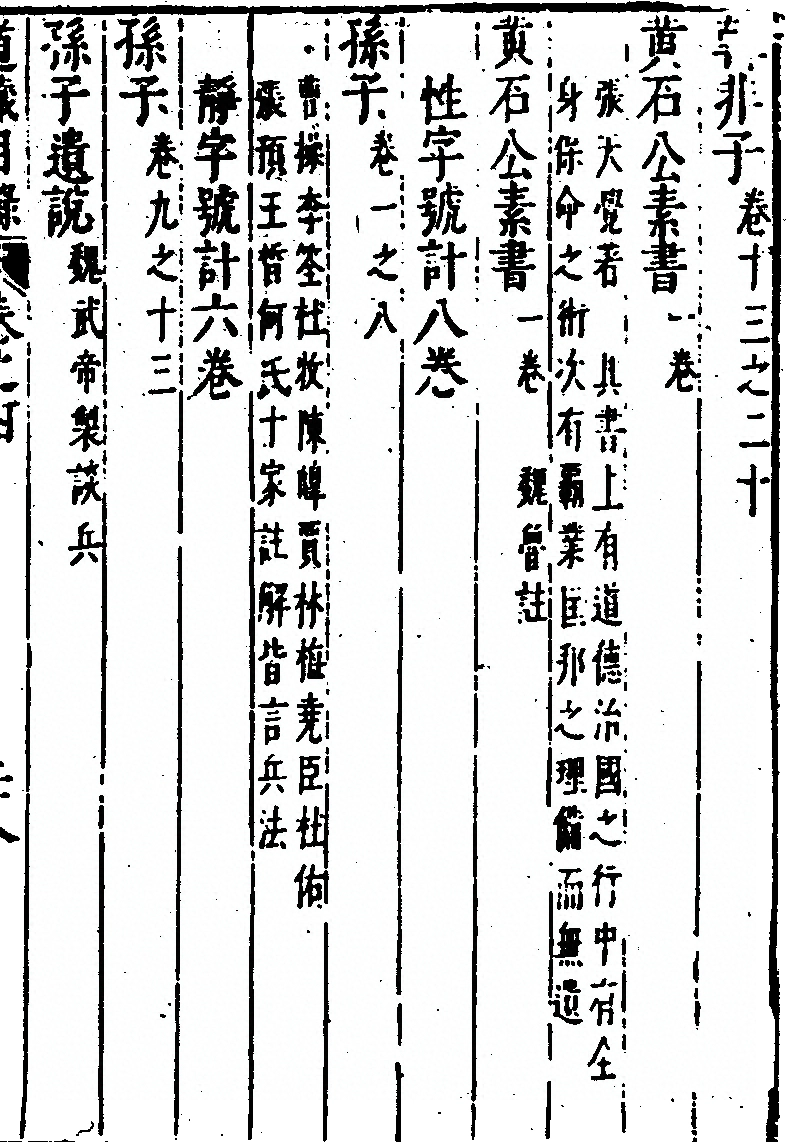 非子卷十三之二十
黄石公素書一卷
張大覺著 其書上有道德治國之行中有全
身保命之術次有霸業匡邦之理備而無遺
黄石公素書一卷 魏魯註
性字號計八卷
孫子卷一之八
曹操李筌杜牧陳皥賈林梅堯臣杜佑
張預王晳何氏十家註解皆言兵法
靜字號計六卷
孫子卷九之十三
孫子遺說魏武帝製談兵